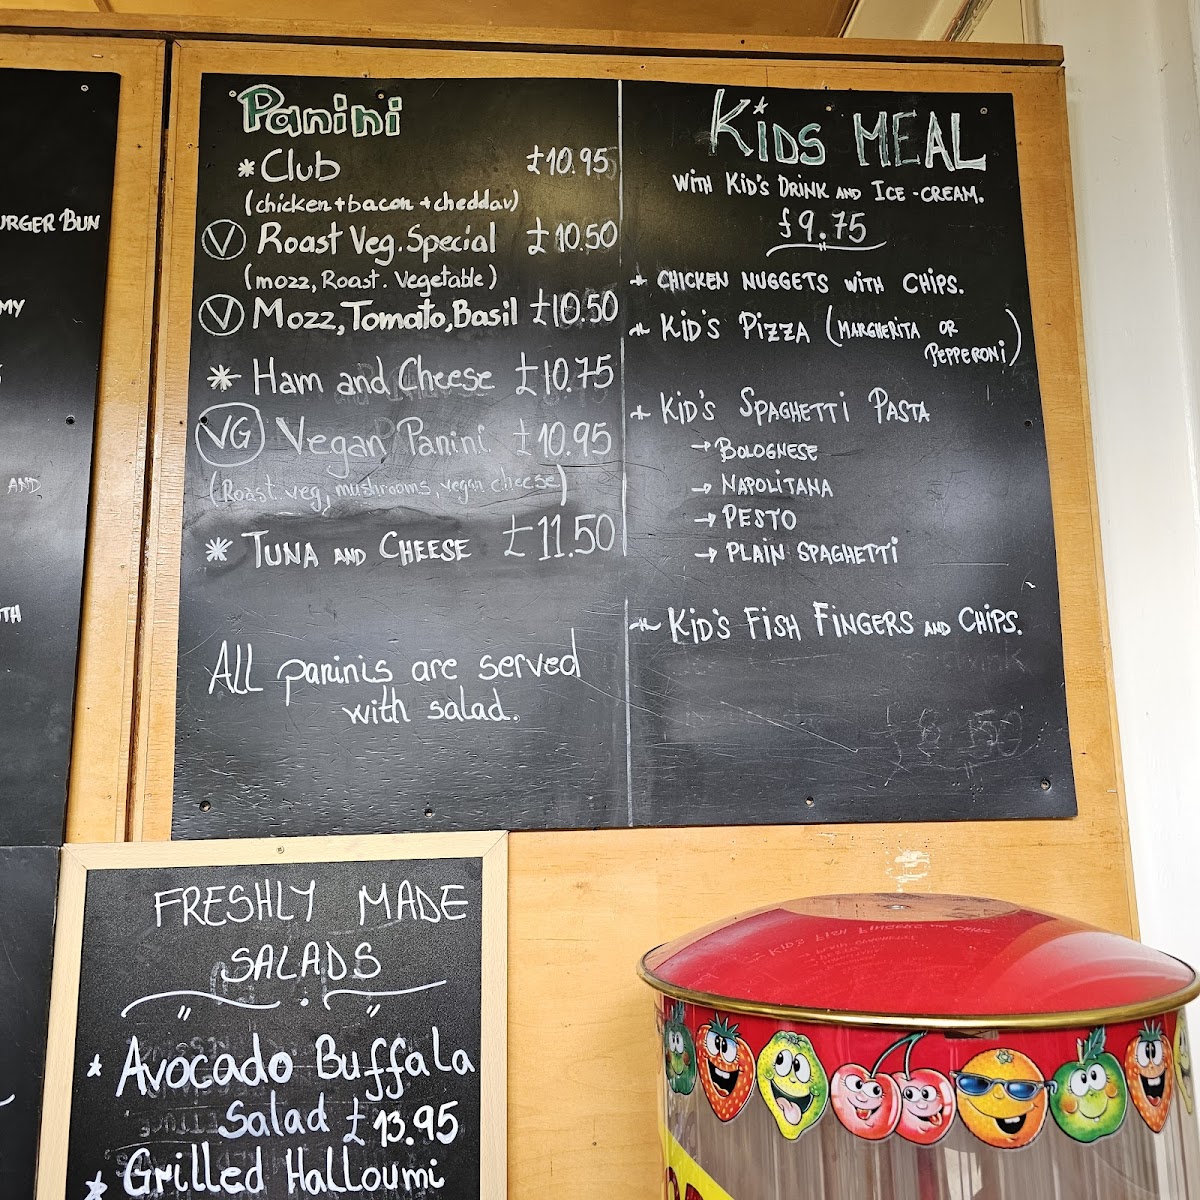 URGER BUN
MY
AND
TH
Panini
* Club £10.95
(chicken + bacon + cheddar)
V Roast Veg. Special £10.50
(mozz, Roast. Vegetable)
V Mozz, Tomato, Basil £10.50
* Ham and Cheese £10.75
VG Vegan Panini £10.95
(Roast veg, mushrooms, vegan cheese)
* TUNA AND CHEESE £11.50
All paninis are served
with salad.
KiDS MEAL
WITH KiD'S DRiNK AND ICE-CREAM.
£9.75
* CHICKEN NUGGETS WiTH CHiPS.
* KiD'S PiZZA (MARGHERiTA OR
PEPPERONi)
* KiD'S SPAGHETTi PASTA
→ BOLOGNESE
→ NAPOLiTANA
→ PESTO
→ PLAiN SPAGHETTi
* KiD'S FiSH FiNGERS AND CHiPS.
FRESHLY MADE
SALADS
* Avocado Buffala
Salad £13.95
* Grilled Halloumi